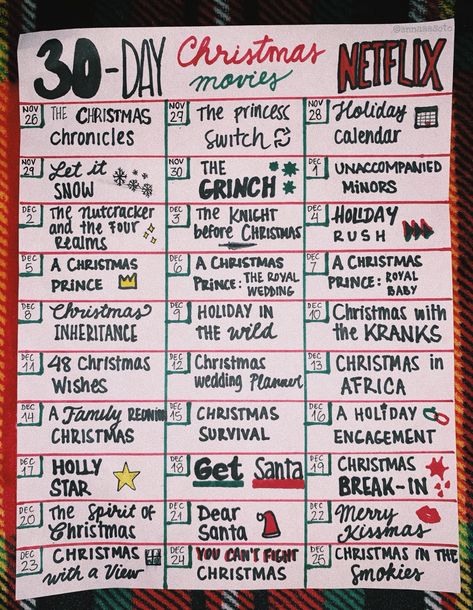 @annaaasoto
30-DAY Christmas movies NETFLIX
NOV 26 THE CHRISTMAS Chronicles
NOV 27 The princess Switch
NOV 28 Holiday calendar
NOV 29 Let it SNOW
NOV 30 THE GRINCH
DEC 1 UNACCOMPANIED MINORS
DEC 2 The Nutcracker and the Four Realms
DEC 3 The KNIGHT before CHRISTMAS
DEC 4 HOLIDAY RUSH
DEC 5 A CHRISTMAS PRINCE
DEC 6 A CHRISTMAS PRINCE: THE ROYAL WEDDING
DEC 7 A CHRISTMAS PRINCE: ROYAL BABY
DEC 8 Christmas INHERITANCE
DEC 9 HOLIDAY IN THE wild
DEC 10 Christmas with the KRANKS
DEC 11 48 Christmas Wishes
DEC 12 Christmas wedding Planner
DEC 13 CHRISTMAS in AFRICA
DEC 14 A Family REUNION CHRISTMAS
DEC 15 CHRISTMAS SURVIVAL
DEC 16 A HOLIDAY ENGAGEMENT
DEC 17 HOLLY STAR
DEC 18 Get Santa
DEC 19 CHRISTMAS BREAK-IN
DEC 20 The Spirit of Christmas
DEC 21 Dear Santa
DEC 22 Merry Kissmas
DEC 23 CHRISTMAS with a View
DEC 24 YOU CAN'T FIGHT CHRISTMAS
DEC 25 CHRISTMAS IN THE Smokies